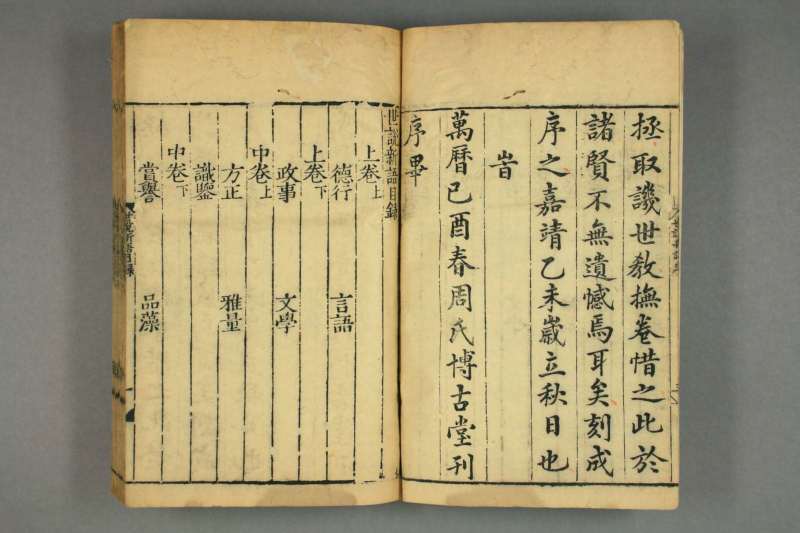 拯取譏世敎撫卷惜之此於
諸賢不無遺憾焉耳矣刻成
序之嘉靖乙未歲立秋日也
旹
萬曆己酉春周氏博古堂刊
序畢
世說新語目錄
上卷上
德行　言語
上卷下
政事　文學
中卷上
方正　雅量
識鑒
中卷下
賞譽　品藻
世說新語目錄